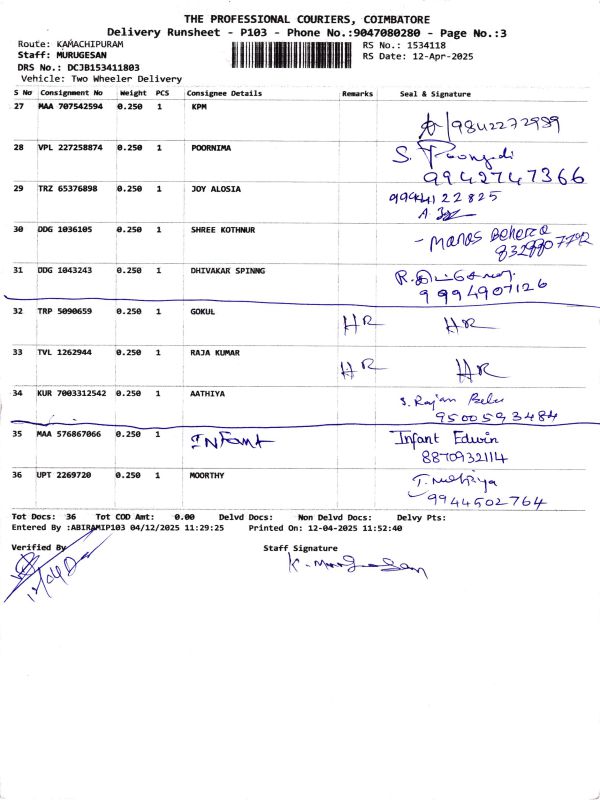 THE PROFESSIONAL COURIERS, COIMBATORE
Delivery Runsheet - P103 - Phone No.:9047080280 - Page No.:3
Route: KAMACHIPURAM RS No.: 1534118
Staff: MURUGESAN RS Date: 12-Apr-2025
DRS No.: DCJB153411803
Vehicle: Two Wheeler Delivery
S No Consignment No Weight PCS Consignee Details Remarks Seal & Signature
27 MAA 707542594 0.250 1 KPM 9842272989
28 VPL 227258874 0.250 1 POORNIMA S. 9942747366
29 TRZ 65376898 0.250 1 JOY ALOSIA 9994122825
30 DDG 1036105 0.250 1 SHREE KOTHNUR - Manas Behera
31 DDG 1043243 0.250 1 DHIVAKAR SPINNG 9994907126
32 TRP 5090659 0.250 1 GOKUL HR HR
33 TVL 1262944 0.250 1 RAJA KUMAR HR HR
34 KUR 7003312542 0.250 1 AATHIYA S. Rajan Babu
9500593484
35 MAA 576867066 0.250 1 INFANT Infant Edwin
8870932114
36 UPT 2269720 0.250 1 MOORTHY
9944502764
Tot Docs: 36 Tot COD Amt: 0.00 Delvd Docs: Non Delvd Docs: Delvy Pts:
Entered By :ABIRAMIP103 04/12/2025 11:29:25 Printed On: 12-04-2025 11:52:40
Verified By Staff Signature